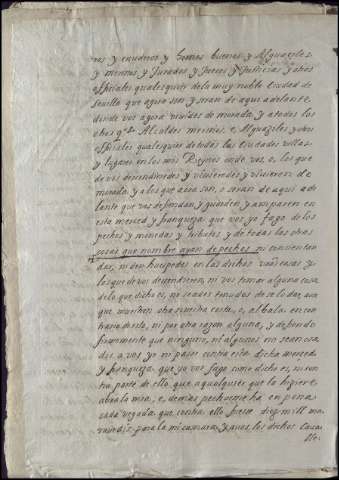 res y escuderos y homes buenos y Alguaziles
y merinos, y Jurados y Juezes y Justicias y otros
ofiziales qualesquier de la muy noble Ciudad de
Sevilla que agora son y seran de aqui adelante,
donde vos agora vivides de morada, y a todos los
otros Alcaldes merinos, e Alguaziles y otros
ofiziales qualesquier de todas las Ciudades villas,
y lugares en los mis Reynos onde vos, e, los que
de vos descendieredes y vinieredes y vivieren de
morada, y a los que aora son, o seran de aqui ade
lante que vos defiendan, y guarden y amparen en
esta merced y franqueza que vos yo fago de los
pechos y monedas y tributos y de todas las otras
cosas que nombre ayan de pechos, ni concientan
dar, ni den huespedes en las dichas casas y
los que de vos decendieren, ni vos tomar alguna cosa
de lo que dicho es, no seades tenudos de se lo dar, aun
que muestren otra nuestra carta, o, al bala en con
trario desto, ni por otra razon alguna, y defiendo
firmemente que ninguno, ni algunos no sean osa
dos a vos yr ni pasar contra esta dicha merced
y franqueza que yo vos fago como dicho es, ni con
tra parte de ello, que a qualquier que lo hiziere,
abra la mia, e, demas pecharme ha en pena
cada vegada que contra ello fuese diez mill ma
ravedis, para la mi camara, y a vos los dichos